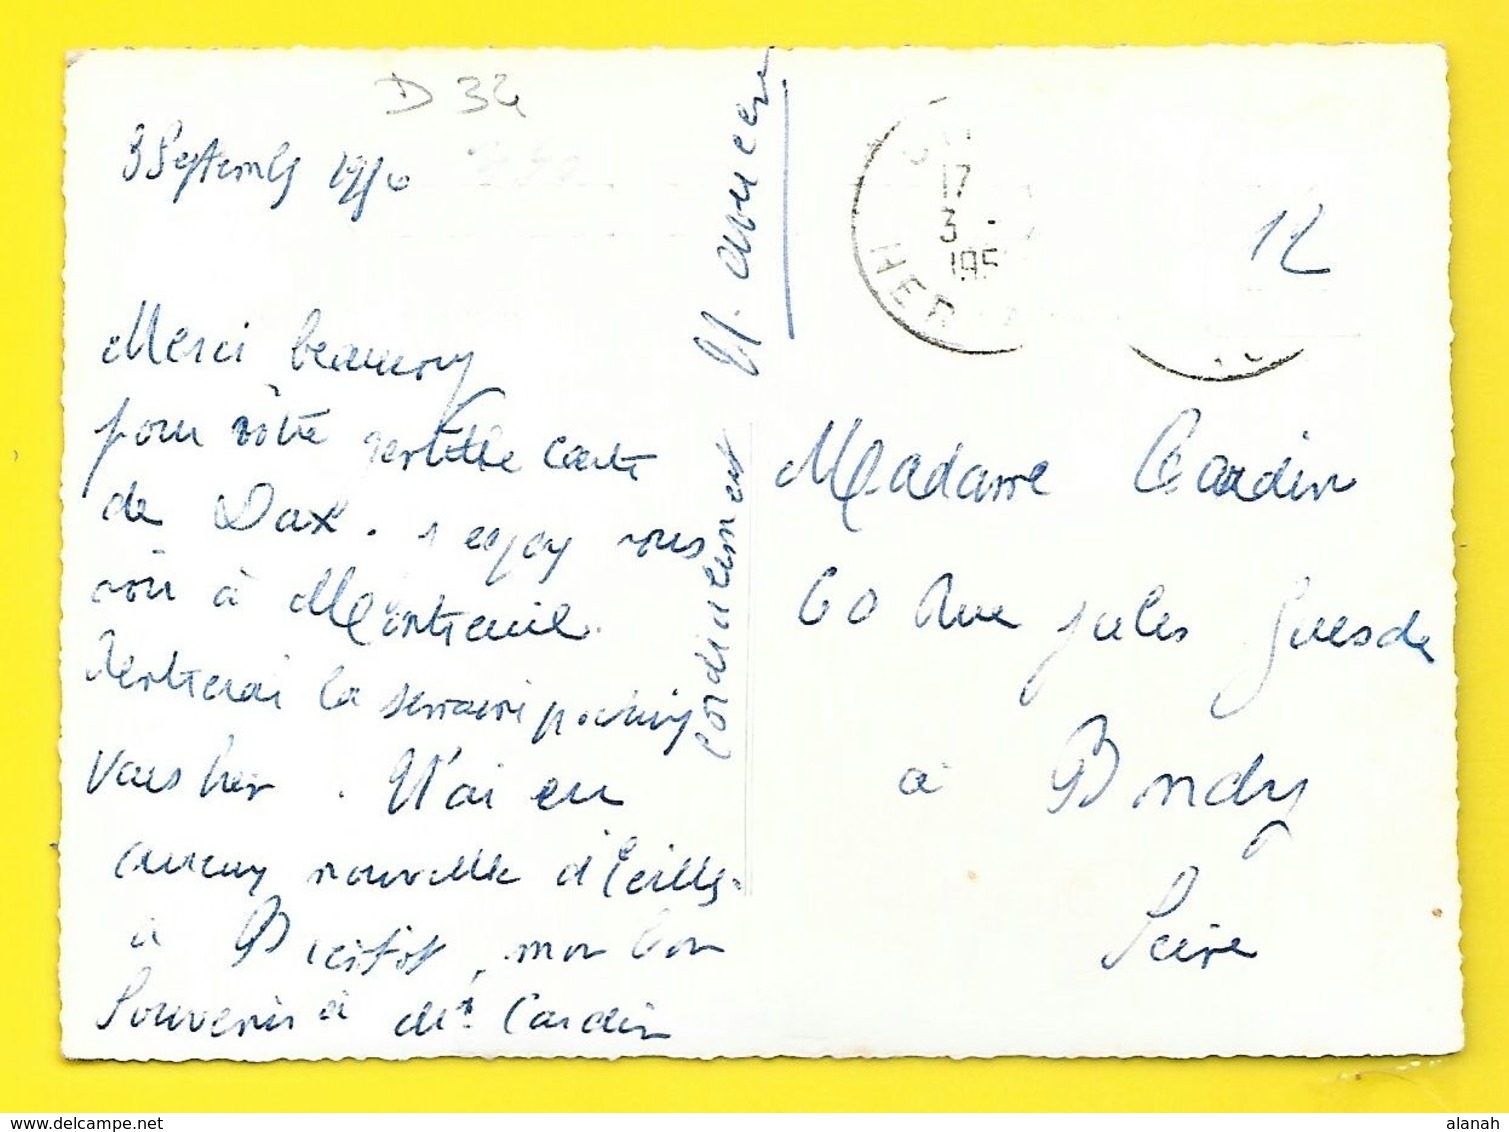 D 34
3 Septembre 1956
Merci beaucoup
pour vôtre gentille carte
de Dax. vous
voir à Montreuil.
Rentrerai la semaine prochaine
N'ai eu
aucune nouvelle d'
à Bientôt, mon bon
Souvenir à Mr Cardin
Cordialement
17
3 -
195
HER
12
Madame Cardin
60 Rue Jules Guesde
à Bondy
Seine
delcampe.net
alanah